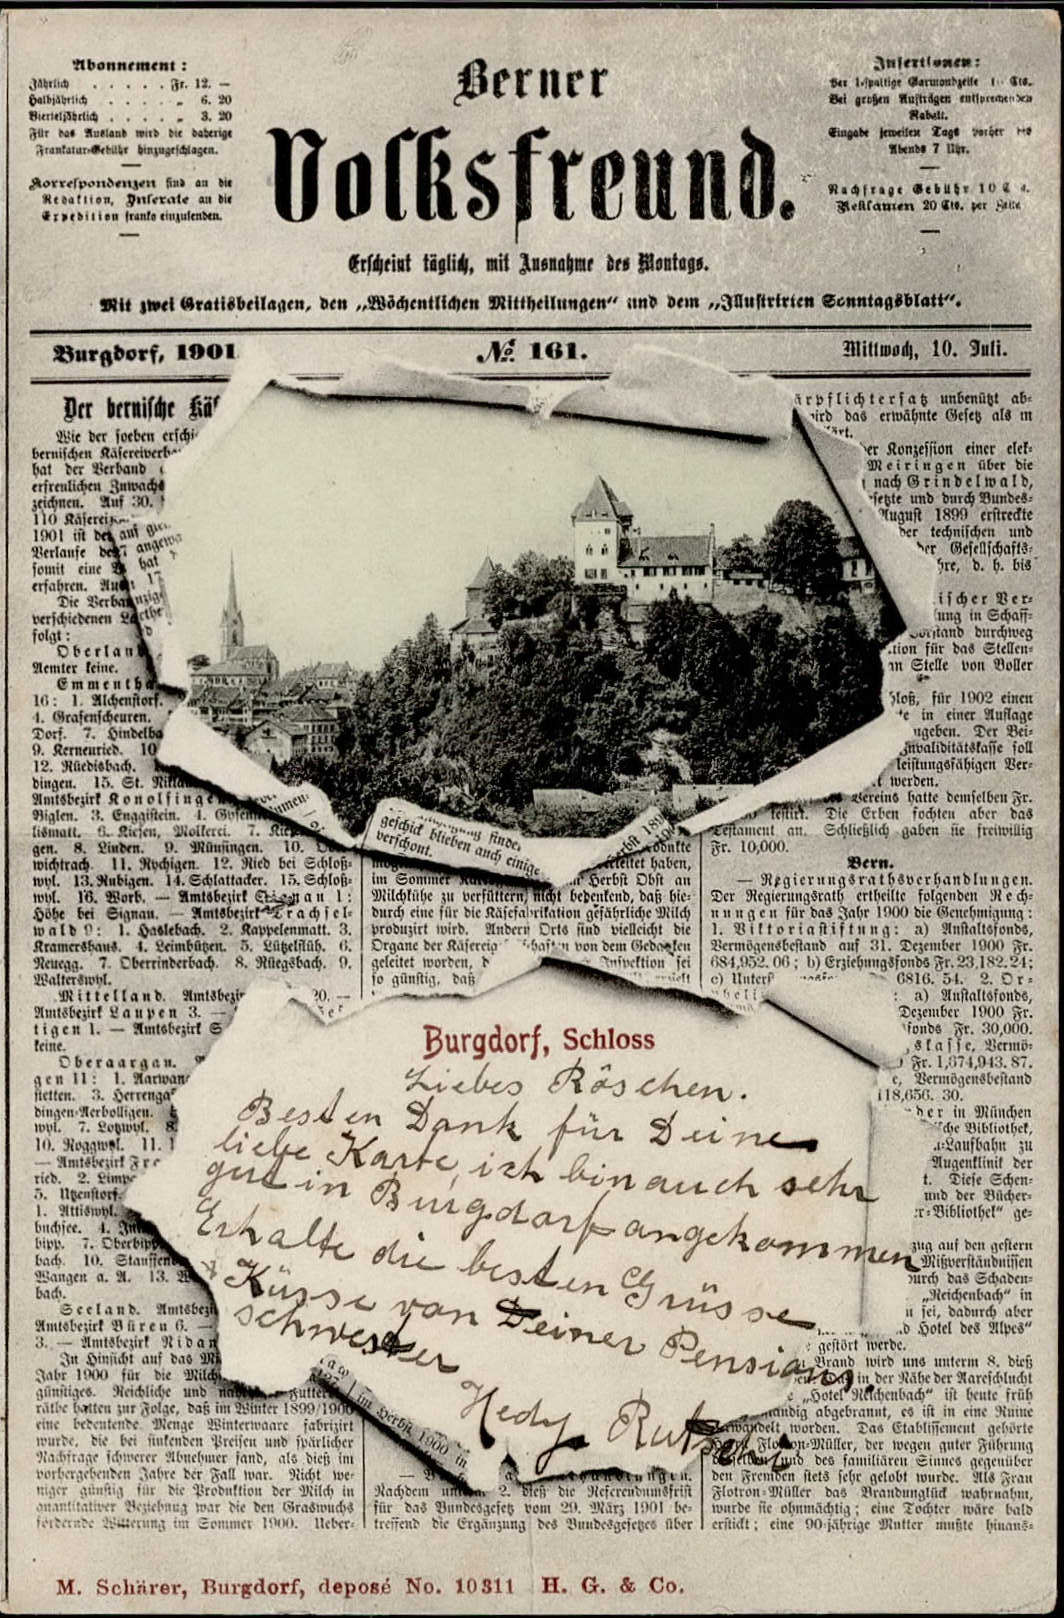 Abonnement:
Jährlich . . . . . Fr. 12. —
Halbjährlich . . . . „ 6. 20
Vierteljährlich . . . . „ 3. 20
Für das Ausland wird die daherige
Frankatur-Gebühr hinzugeschlagen.
Korrespondenzen sind an die
Redaktion, Inserate an die
Expedition franko einzusenden.
Berner
Volksfreund.
Erscheint täglich, mit Ausnahme des Montags.
Insertionen:
Der 1-spaltige Garmondzeile Cts.
Bei großen Aufträgen entsprechenden
Rabatt.
Eingabe jeweilen Tags vorher bis
Abends 7 Uhr.
Nachfrage Gebühr 10 Cts.
Reklamen 20 Cts. per Zeile
Mit zwei Gratisbeilagen, den „Wöchentlichen Mittheilungen“ und dem „Illustrirten Sonntagsblatt“.
Burgdorf, 1901
No. 161.
Mittwoch, 10. Juli.
Der bernische Käs
Wie der soeben erschi
bernischen Käsereiverba
hat der Verband
erfreulichen Zuwachs
zeichnen. Auf 30.
110 Käserei
1901 ist der
Verlaufe des
somit eine
erfahren. Au
Die Verban
verschiedenen
folgt:
Oberland
Aemter keine.
Emmentha
16: 1. Alchenstorf.
4. Grafenscheuren.
Dorf. 7. Hindelba
9. Kernenried. 10
12. Rüedisbach.
dingen. 15. St. Nikla
Amtsbezirk Konolfingen
Biglen. 3. Enggistein. 4. Gysen
lismatt. 6. Kiesen, Molkerei. 7. Kie
gen. 8. Linden. 9. Münsingen. 10. O
wichtrach. 11. Rychigen. 12. Ried bei Schloß-
wyl. 13. Rubigen. 14. Schlattacker. 15. Schloß-
wyl. 16. Worb. — Amtsbezirk Signau 1:
Höhe bei Signau. — Amtsbezirk Trachsel-
wald 9: 1. Haslebach. 2. Kappelenmatt. 3.
Kramershaus. 4. Leimbützen. 5. Lützelflüh. 6.
Neuegg. 7. Oberrinderbach. 8. Rüegsbach. 9.
Walterswyl.
Mittelland. Amtsbezir
Amtsbezirk Laupen 3. —
tigen 1. — Amtsbezirk S
keine.
Oberaargau.
gen 11: 1. Aarwan
stetten. 3. Herrenga
dingen-Aerbolligen.
wyl. 7. Lotzwyl. 8.
10. Roggwyl. 11.
— Amtsbezirk Fra
ried. 2. Limpa
5. Utzenstorf.
1. Attiswyl.
buchsee. 4. In
bipp. 7. Oberbipp.
bach. 10. Stauffen
Wangen a. A. 13.
bach.
Seeland. Amtsbezi
Amtsbezirk Büren 6. —
3. — Amtsbezirk Nidau
In Hinsicht auf das Mi
Jahr 1900 für die Milch
günstiges. Reichliche und Futter
räthe hatten zur Folge, daß im Winter 1899/1900
eine bedeutende Menge Winterwaare fabrizirt
wurde, die bei sinkenden Preisen und spärlicher
Nachfrage schwerer Abnehmer fand, als dieß im
vorhergehenden Jahre der Fall war. Nicht we-
niger günstig für die Produktion der Milch in
quantitativer Beziehung war die den Graswuchs
fördernde Witterung im Sommer 1900. Ueber-
auf
angewa
hat
geschick blieben auch einige
verschont.
Herbst 189
verleitet haben,
im Sommer Herbst Obst an
Milchkühe zu verfüttern, nicht bedenkend, daß hie-
durch eine für die Käsefabrikation gefährliche Milch
produzirt wird. Andern Orts sind vielleicht die
Organe der Käsereig von dem Gedanken
geleitet worden, d Inspektion sei
so günstig, daß
im Herbst 1900 in
Nachdem unterm 2. dieß die Referendumsfrist
für das Bundesgesetz vom 29. März 1901 be-
treffend die Ergänzung des Bundesgesetzes über
ärpflichtersatz unbenützt ab-
wird das erwähnte Gesetz als in
ärt.
er Konzession einer elek-
Meiringen über die
nach Grindelwald,
setzte und durch Bundes-
August 1899 erstreckte
der technischen und
der Gesellschafts-
hre, d. h. bis
ischer Ver-
lung in Schaff-
Vorstand durchweg
tion für das Stellen-
an Stelle von Voller
hloß, für 1902 einen
te in einer Auflage
ugeben. Der Bei-
Invaliditätskasse soll
leistungsfähigen Ver-
t werden.
Vereins hatte demselben Fr.
testirt. Die Erben fochten aber das
Testament an. Schließlich gaben sie freiwillig
Fr. 10,000.
Bern.
— Regierungsrathsverhandlungen.
Der Regierungsrath ertheilte folgenden Rech-
nungen für das Jahr 1900 die Genehmigung:
1. Viktoriastiftung: a) Anstaltsfonds,
Vermögensbestand auf 31. Dezember 1900 Fr.
684,952. 06; b) Erziehungsfonds Fr. 23,182. 24;
c) Unterst 6816. 54. 2. Or-
: a) Anstaltsfonds,
Dezember 1900 Fr.
fonds Fr. 30,000.
skasse, Vermö-
Fr. 1,674,943. 87.
e, Vermögensbestand
118,656. 30.
der in München
che Bibliothek,
Laufbahn zu
Augenklinik der
t. Diese Schen-
und der Bücher-
r-Bibliothek“ ge-
zug auf den gestern
Mißverständnissen
durch das Schaden-
„Reichenbach“ in
n sei, dadurch aber
d Hotel des Alpes“
gestört werde.
Brand wird uns unterm 8. dieß
in der Nähe der Aareschlucht
„Hotel Reichenbach“ ist heute früh
ändig abgebrannt, es ist in eine Ruine
verwandelt worden. Das Etablissement gehörte
Flotron-Müller, der wegen guter Führung
desselben und des familiären Sinnes gegenüber
den Fremden stets sehr gelobt wurde. Als Frau
Flotron-Müller das Brandunglück wahrnahm,
wurde sie ohnmächtig; eine Tochter wäre bald
erstickt; eine 90-jährige Mutter mußte hinaus-
Burgdorf, Schloss
Liebes Röschen.
Besten Dank für Deine
liebe Karte, ich bin auch sehr
gut in Burgdorf angekommen
Erhalte die besten Grüsse
Küsse von Deiner Pensions
schwester
Hedy Rutschi
M. Schärer, Burgdorf, deposé No. 10311 H. G. & Co.